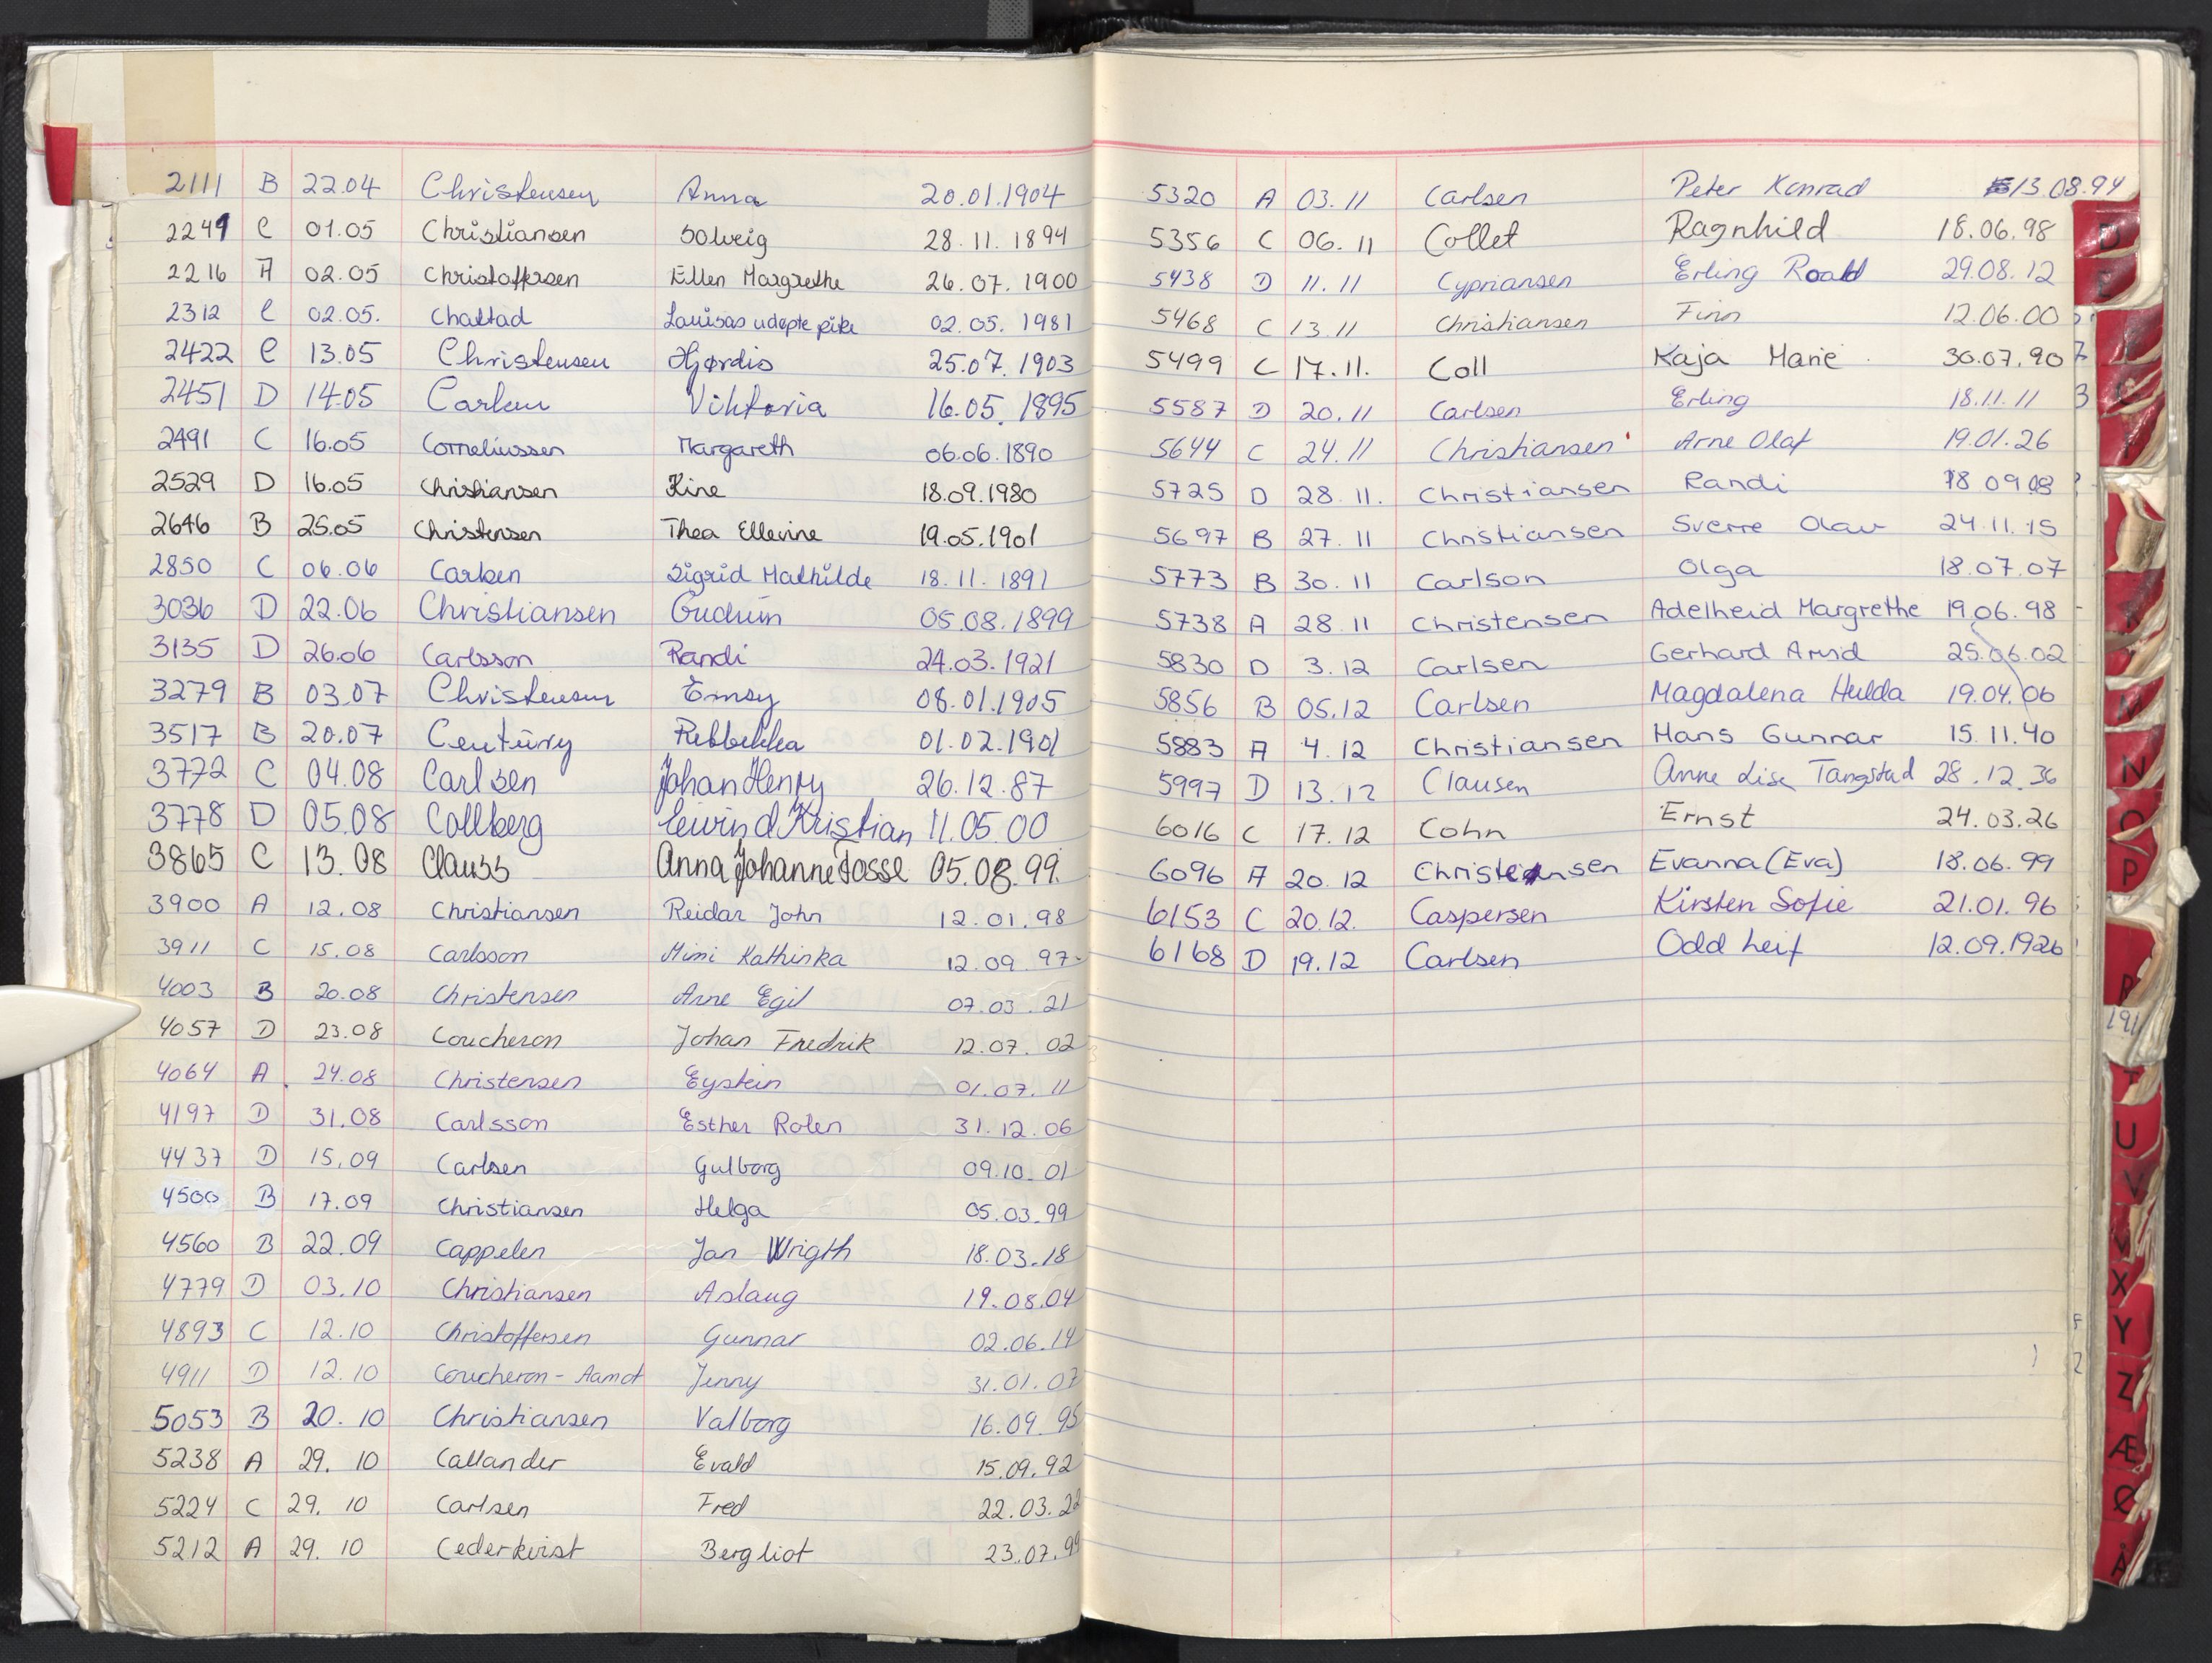 2111 B 22.04 Christensen Anna 20.01.1904
2241 C 01.05 Christiansen Solveig 28.11.1894
2216 A 02.05 Christoffersen Ellen Margrethe 26.07.1900
2312 C 02.05. Chattad Louisas udøpte pike 02.05.1981
2422 C 13.05 Christensen Hjørdis 25.07.1903
2451 D 14.05 Carlsen Viktoria 16.05.1895
2491 C 16.05 Corneliussen Margareth 06.06.1890
2529 D 16.05 Christiansen Kine 18.09.1980
2646 B 25.05 Christensen Thea Ellevine 19.05.1901
2850 C 06.06 Carlsen Sigrid Mathilde 18.11.1891
3036 D 22.06 Christiansen Gudrun 05.08.1899
3135 D 26.06 Carlsson Randi 24.03.1921
3279 B 03.07 Christensen Emsy 08.01.1905
3517 B 20.07 Century Rebbekka 01.02.1901
3772 C 04.08 Carlsen Johan Henry 26.12.87
3778 D 05.08 Collberg Eivind Kristian 11.05.00
3865 C 13.08 Clauss Anna Johanne Fosse 05.08.99.
3900 A 12.08 Christiansen Reidar John 12.01.98
3911 C 15.08 Carlsson Mimi Kathinka 12.09.97
4003 B 20.08 Christensen Arne Egil 07.03.21
4057 D 23.08 Coucheron Johan Fredrik 12.07.02
4064 A 24.08 Christensen Eystein 01.07.11
4197 D 31.08 Carlsson Esther Rolen 31.12.06
4437 D 15.09 Carlsen Gulborg 09.10.01
4500 B 17.09 Christiansen Helga 05.03.99
4560 B 22.09 Cappelen Jan Wrigth 18.03.18
4779 D 03.10 Christiansen Aslaug 19.08.04
4893 C 12.10 Christoffersen Gunnar 02.06.14
4911 D 12.10 Coucheron - Aamot Jenny 31.01.07
5053 B 20.10 Christiansen Valborg 16.09.95
5238 A 29.10 Callander Evald 15.09.92
5224 C 29.10 Carlsen Fred 22.03.22
5212 A 29.10 Cederkvist Bergliot 23.07.99
5320 A 03.11 Carlsen Peter Konrad 13.08.94
5356 C 06.11 Collet Ragnhild 18.06.98
5438 D 11.11 Cypriansen Erling Roald 29.08.12
5468 C 13.11 Christiansen Finn 12.06.00
5499 C 17.11. Coll Kaja Marie 30.07.90
5587 D 20.11 Carlsen Erling 18.11.11
5644 C 24.11 Christiansen Arne Olaf 19.01.26
5725 D 28.11. Christiansen Randi 18 09 08
5697 B 27.11 Christiansen Sverre Olav 24.11.15
5773 B 30.11 Carlson Olga 18.07.07
5738 A 28.11 Christensen Adelheid Margrethe 19.06.98
5830 D 3.12 Carlsen Gerhard Arvid 25.06.02
5856 B 05.12 Carlsen Magdalena Hulda 19.04.06
5883 A 4.12 Christiansen Hans Gunnar 15.11.40
5997 D 13.12 Clausen Anne Lise Tangstad 28.12.36
6016 C 17.12 Cohn Ernst 24.03.26
6096 A 20.12 Christensen Evanna (Eva) 18.06.99
6153 C 20.12. Caspersen Kirsten Sofie 21.01.96
6168 D 19.12 Carlsen Odd Leif 12.09.1926
N
O
P
R
U
V
X
Y
Z
Æ
Ø
Å